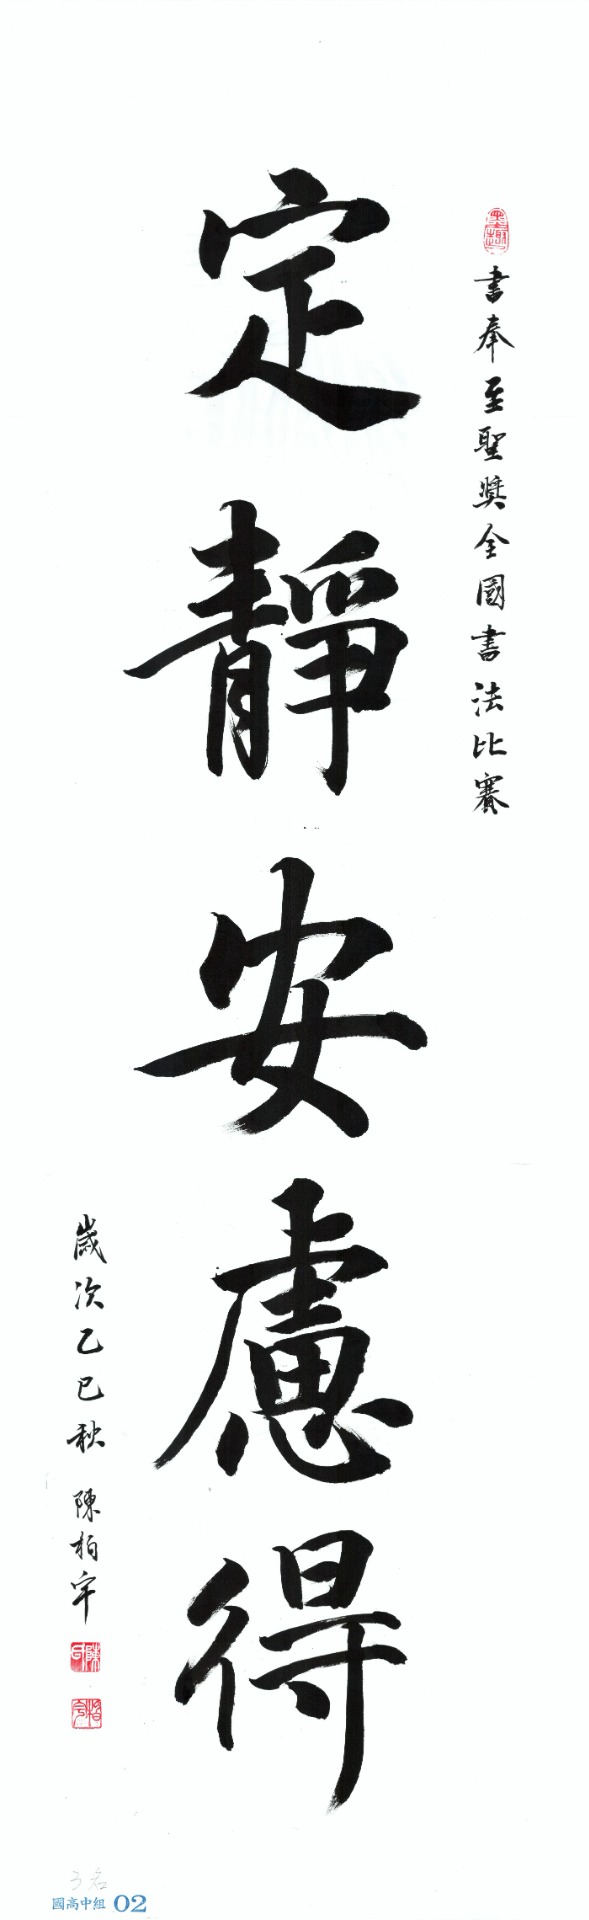 書奉至聖奬全國書法比賽
定靜安慮得
歲次乙巳秋 陳柏宇
國高中組 02